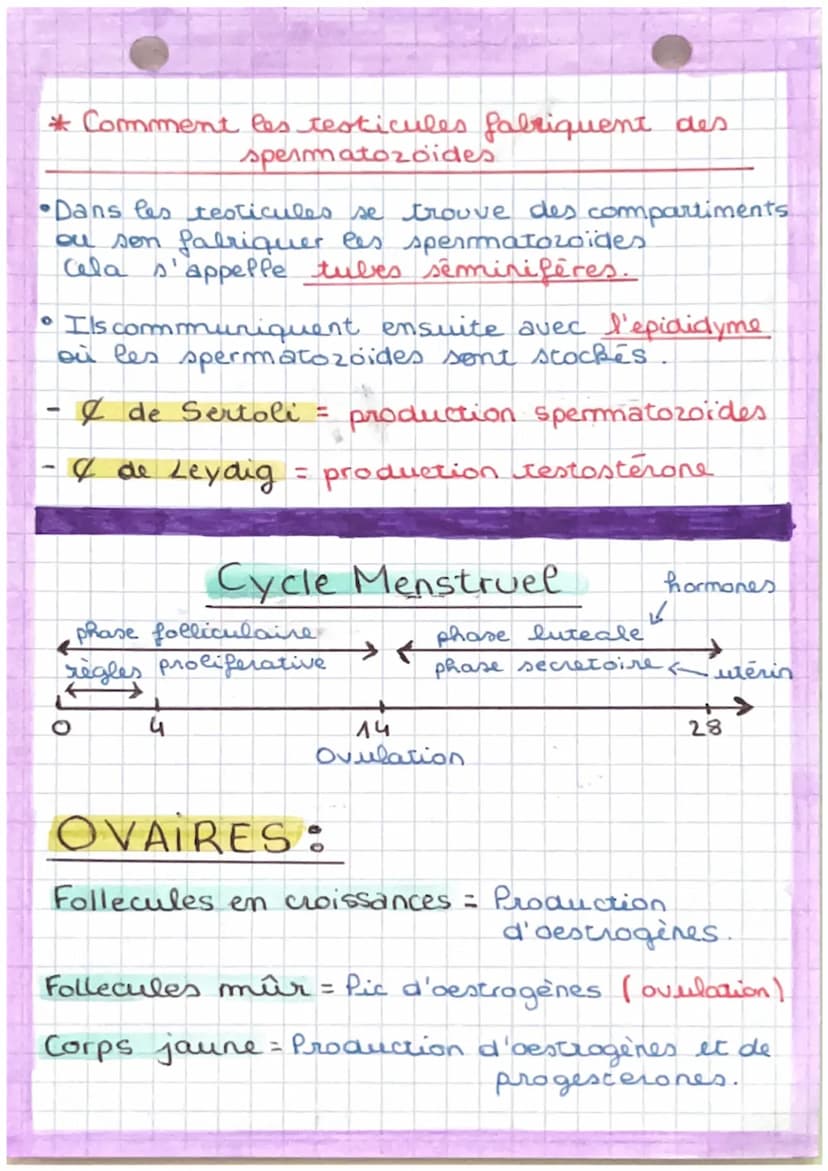 * Comment les testicules fabriquent des
spermatozoïdes
• Dans les testicules se trouve des compartiments
ou son fabriquer les spermatozoïdes
Cela s'appelle tubes séminifères.
• Ils communiquent ensuite avec l'epididyme
où les spermatozoïdes sont stockés.
- ₵ de Sertoli = production spermatozoïdes
- ₵ de Leydig = production testostérone
Cycle Menstruel
hormones
phase folliculaire phase luteale
règles proliferative phase secretoire utérin
0 4 14 28
Ovulation
OVAIRES :
Follecules en croissances = Production
d'oestrogènes.
Follecules mûr = Pic d'oestrogènes (ovulation)
Corps jaune = Production d'oestrogènes et de
progesterones.